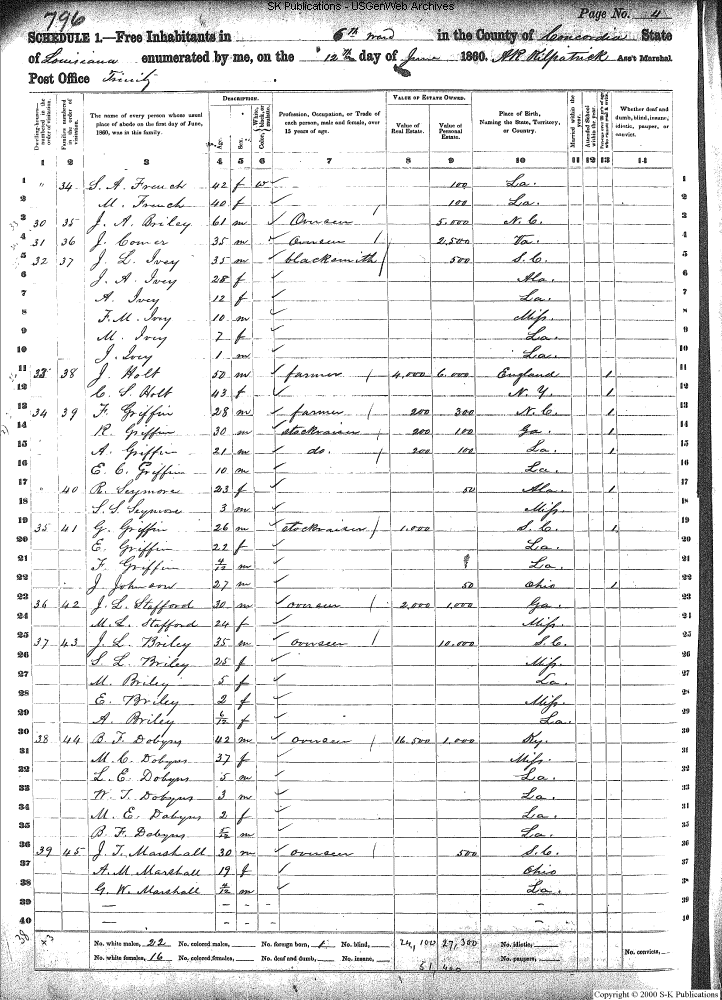 SK Publications - USGenWeb Archives
796
Page No. 4
SCHEDULE 1.—Free Inhabitants in 6th ward in the County of Concordia State
of Louisiana enumerated by me, on the 12th day of June 1860. AR Kilpatrick Ass't Marshal
Post Office Trinity
Dwelling-houses—numbered in the order of visitation. Families numbered in the order of visitation. The name of every person whose usual place of abode on the first day of June, 1860, was in this family. DESCRIPTION. Age. Sex. Color, White, black, or mulatto. Profession, Occupation, or Trade of each person, male and female, over 15 years of age. VALUE OF ESTATE OWNED. Value of Real Estate. Value of Personal Estate. Place of Birth, Naming the State, Territory, or Country. Married within the year. Attended School within the year. Whether deaf and dumb, blind, insane, idiotic, pauper, or convict.
1 2 3 4 5 6 7 8 9 10 11 12 13 14
1 " 34 S. A. French 42 f w 100 La. 1
2 M. French 40 f 100 La. 2
3 30 35 J. A. Briley 61 m Overseer / 5,000 N. C. 3
4 31 36 J. Comer 35 m Overseer / 2,500 Va. 4
5 32 37 J. L. Ivey 35 m blacksmith / 500 S. C. 5
6 J. A. Ivey 28 f Ala. 6
7 A. Ivey 12 f La. 7
8 F. M. Ivey 10 m Miss. 8
9 M. Ivey 7 f La. 9
10 J. Ivey 1 m La. 10
11 33 38 J. Holt 50 m farmer / 4,000 6,000 England 1 11
12 C. S. Holt 43 f N. Y. 1 12
13 34 39 F. Griffin 28 m farmer / 200 300 N. C. 1 13
14 R. Griffin 30 m stockraiser / 200 100 Ga. 1 14
15 A. Griffin 21 m do. / 200 100 La. 1 15
16 E. C. Griffin 10 m La. 16
17 " 40 R. Seymore 23 f 50 Ala. 1 17
18 S. S. Seymore 3 m Miss. 18
19 35 41 G. Griffin 26 m stockraiser / 1,000 S. C. 1 19
20 E. Griffin 22 f La. 20
21 F. Griffin 4/12 m La. 21
22 J. Johnson 27 m 50 Ohio 1 22
23 36 42 J. L. Stafford 30 m overseer / 2,000 1,000 Ga. 23
24 M. L. Stafford 24 f Miss. 24
25 37 43 J. L. Briley 35 m overseer / 10,000 S. C. 25
26 S. L. Briley 25 f Miss. 26
27 M. Briley 5 f La. 27
28 E. Briley 2 f Miss. 28
29 A. Briley 6/12 f La. 29
30 38 44 B. F. Dobyns 42 m overseer / 16,500 1,000 Ky. 30
31 M. C. Dobyns 37 f Miss. 31
32 L. E. Dobyns 5 m La. 32
33 W. T. Dobyns 3 m La. 33
34 M. E. Dobyns 2 f La. 34
35 B. F. Dobyns m La. 35
36 39 45 J. T. Marshall 30 m overseer / 500 S. C. 36
37 A. M. Marshall 19 f Ohio 37
38 G. W. Marshall m La. 38
39 — - - - 39
40 — - - - 40
38 43 No. white males, 22 No. colored males, No. foreign born, 1 No. blind, 24,100 27,300 No. idiotic, No. convicts,
No. white females, 16 No. colored females, No. deaf and dumb, No. insane, No. paupers,
51,400
Copyright © 2000 S-K Publications